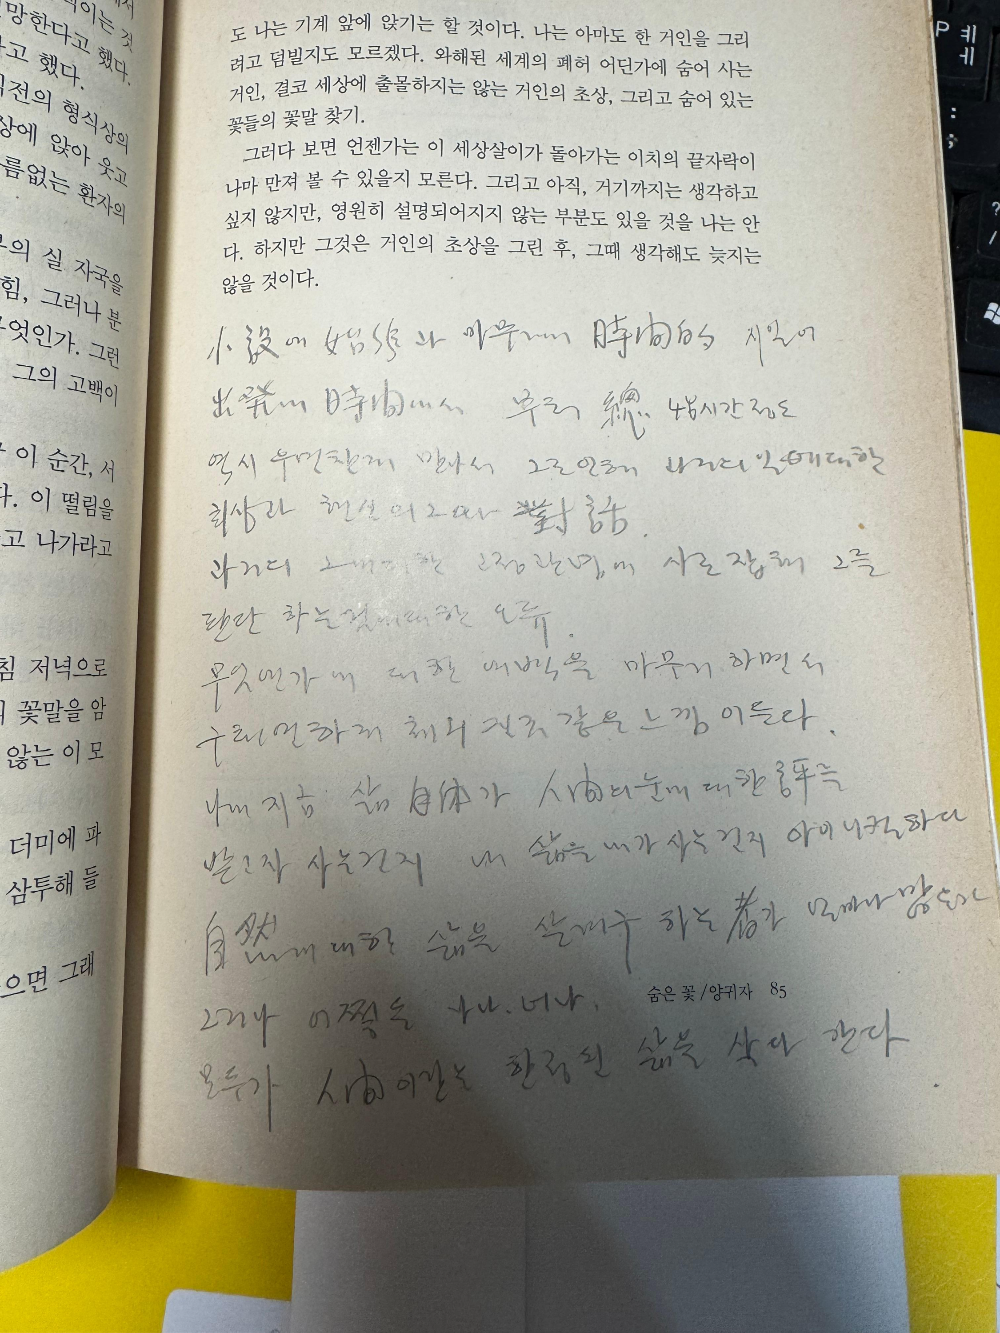 에서
적이는 것
망한다고 했다.
고 했다.
직전의 형식상의
상에 앉아 웃고
름없는 환자의
부의 실 자국을
힘, 그러나 분
무엇인가. 그런
그의 고백이
이 순간, 서
다. 이 떨림을
고 나가라고
침 저녁으로
꽃말을 암
않는 이 모
더미에 파
삼투해 들
으면 그래
도 나는 기계 앞에 앉기는 할 것이다. 나는 아마도 한 거인을 그리
려고 덤빌지도 모르겠다. 와해된 세계의 폐허 어딘가에 숨어 사는
거인, 결코 세상에 출몰하지는 않는 거인의 초상, 그리고 숨어 있는
꽃들의 꽃말 찾기.
그러다 보면 언젠가는 이 세상살이가 돌아가는 이치의 끝자락이
나마 만져 볼 수 있을지 모른다. 그리고 아직, 거기까지는 생각하고
싶지 않지만, 영원히 설명되어지지 않는 부분도 있을 것을 나는 안
다. 하지만 그것은 거인의 초상을 그린 후, 그때 생각해도 늦지는
않을 것이다.
小設에 始終과 마무리에 時間的
出發에 時間에서 무려 總 48시간정도
역시 우연찮게 만나서 그로인해 일에대한
회상과 현실 對話.
고정관념에 사로잡혀 그를
판단 하는 오류.
무엇인가에 대한 여백을 마무리 하면서
느낌이든다.
나에 지금 삶 自体가 人間의눈에 대한 評을
받고자 사는건지 내 삶을 내가 사는건지 아이니컬하다
自然에 대한 삶을 갈구 하는 者가 얼마나 많은가
숨은 꽃/양귀자 85
그러나 어쩌는 나나. 너나.
모두가 人間이라는 한정된 삶을 산다 한다
P ㅖ
ㅔ
:
;
?
/